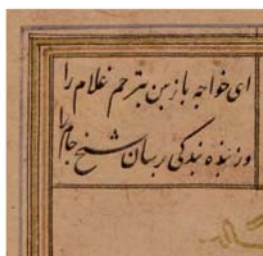 ای خواجه بازبین بترحم غلام را
وز بنده بندگی برسان شیخ جام را